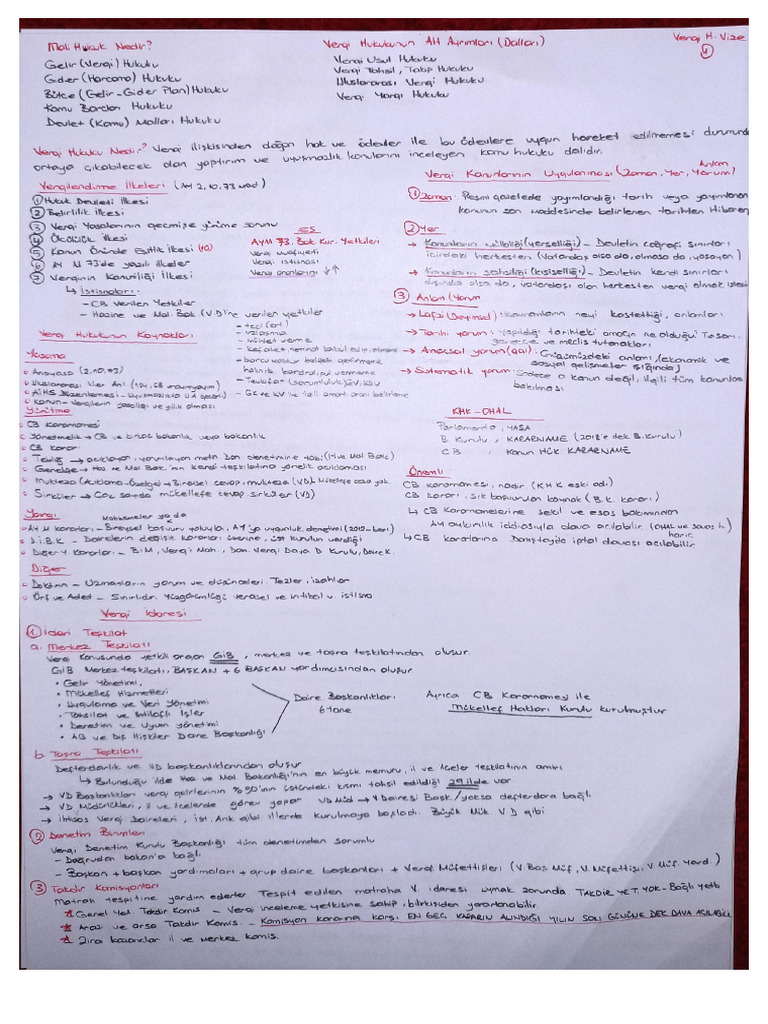 Vergi H. Vize
1
Mali Hukuk Nedir?
Gelir (Vergi) Hukuku
Gider (Harcama) Hukuku
Bütçe (Gelir-Gider Plan) Hukuku
Kamu Borçları Hukuku
Devlet (Kamu) Malları Hukuku
Vergi Hukukunun Alt Ayrımları (Dalları)
Vergi Usul Hukuku
Vergi Tahsil, Takip Hukuku
Uluslararası Vergi Hukuku
Vergi Yargı Hukuku
Vergi Hukuku Nedir? Vergi ilişkisinden doğan hak ve ödevler ile bu ödevlere uygun hareket edilmemesi durumunda
ortaya çıkabilecek olan yaptırım ve uyuşmazlık konularını inceleyen kamu hukuku dalıdır.
Vergilendirme İlkeleri (AY 2, 10, 73 mad)
1 Hukuk Devleti İlkesi
2 Belirlilik İlkesi
3 Vergi Yasalarının geçmişe yürüme sorunu
4 Ölçülülük İlkesi
5 Kanun Önünde Eşitlik İlkesi (10)
6 AY M 73'de yazılı ilkeler
7 Verginin Kanuniliği İlkesi
↳ İstisnaları:
- CB Verilen Yetkiler
- Hazine ve Mal. Bak (V.D)'ne verilen yetkiler
AYM 73. Bak Kur. Yetkileri
Vergi muafiyeti
Vergi istisnası
Vergi oranlarını ↓↑
- tecil (ert)
- uzlaşma
- mühlet verme
- kefalet, teminat kabul edip, etmeme
- borcu yoktur belgesi getirmeme
halinde bandrol, pul vermeme
- Tevkifat (sorumluluk)GV, KDV
- GV ve KV ile ilgili amort oranı belirleme
Vergi Kanunlarının Uygulanması (Zaman, Yer, Anlam Yorum)
1 Zaman: Resmi gazetede yayımlandığı tarih veya yayımlanan
kanunun son maddesinde belirlenen tarihten itibaren
2 Yer
→ Kanunların mülkiliği (yerselliği) - Devletin coğrafi sınırları
içindeki herkesten (Vatandaş olsa da, olmasa da, yaşayan)
→ Kanunların şahsiliği (kişiselliği) - Devletin kendi sınırları
dışında olsa da, vatandaşı olan herkesten vergi almak istesi
3 Anlam (Yorum
→ Lafzi (Deyimsel): kanunların neyi kastettiği, anlamları
→ Tarihi yorum: Yapıldığı tarihteki amacın ne olduğu? Tasarı,
gerekçe ve meclis tutanakları
→ Amaçsal yorum (gai): Günümüzdeki anlamı (ekonomik ve
sosyal gelişmeler ışığında)
→ Sistematik yorum: Sadece o kanun değil, ilgili tüm kanunlara
bakılması
Vergi Hukukunun Kaynakları
Yasama
Anayasa (2,10,73)
Uluslararası Ver. Anl.
Kanun - Vergilerin yasallığı ve yıllık olması
Yürütme
CB Kararnamesi
Yönetmelik → CB ve birkaç bakanlık veya bakanlık
CB Karar
Tebliğ → açıklayan, yorumlayan metin. Dan. denetimine tabi (H. ve Mal Bak)
Genelge → Haz ve Mal Bak.'nın kendi teşkilatına yönelik açıklaması
Mukteza (Açıklama-Özelge) → Bireysel cevap, mukteza (VD)
Sirküler → Çok sayıda mükellefe cevap sirküler (VD)
Yargı Mahkemeler ya da
AY M kararları - Bireysel başvuru yoluyla, AY'ya uygunluk denetimi
D.İ.B.K - Dairelerin değişik kararları üzerine, İçt Kurulun verdiği
Diğer Y. Kararları - BİM, Vergi Mah, Dan. Vergi Dava D. Kurulu, Daire K.
Diğer
Doktrin - Uzmanların yorum ve düşünceleri. Tezler, izahlar
Örf ve Adet - Sınırlıdır.
KHK-OHAL
Parlamento, YASA
B. Kurulu, KARARNAME (2018'e dek B.Kurulu)
CB, Kanun Hük KARARNAME
Önemli
CB kararnamesi, nadir (KHK eski adı)
CB kararı, sık başvurulan kaynak (B.K. kararı)
↳ CB Kararnamelerine şekil ve esas bakımından
AY aykırılık iddiasıyla dava açılabilir (OHAL ve savaş h. hariç
↳ CB kararlarına Danıştayda iptal davası açılabilir
Vergi İdaresi
1. İdari Teşkilat
a. Merkez Teşkilatı
Vergi konusunda yetkili organ GİB, merkez ve taşra teşkilatından oluşur.
GİB Merkez teşkilatı, BAŞKAN + 6 BAŞKAN yardımcısından oluşur
• Gelir Yönetimi,
• Mükellef Hizmetleri
• Uygulama ve Veri Yönetimi
• Tahsilat ve İhtilaflı İşler
• Denetim ve Uyum yönetimi
• AB ve Dış İlişkiler Daire Başkanlığı
Daire Başkanlıkları
6 tane
Ayrıca CB Kararnamesi ile
Mükellef Hakları Kurulu kurulmuştur
b Taşra Teşkilatı
Defterdarlık ve VD başkanlıklarından oluşur
↳ Bulunduğu ilde Haz ve Mal Bakanlığı'nın en büyük memuru, il ve ilçeler teşkilatının amiri
→ VD Başkanlıkları vergi gelirlerinin %90'nın üstündeki kısmı tahsil edildiği 29 ilde var
→ VD Müdürlükleri, il ve ilçelerde görev yapar VD Müd → V Dairesi Başk/yoksa defterdara bağlı
→ İhtisas Vergi Daireleri, ist. Ank gibi illerde kurulmaya başladı. Büyük Mük. V D gibi
2 Denetim Birimleri
Vergi Denetim Kurulu Başkanlığı tüm denetimden sorumlu
- Doğrudan bakan'a bağlı
- Başkan + başkan yardımcıları + grup daire başkanları + Vergi Müfettişleri (V. Baş Müf, V. Müfettişi, V. Müf. Yard.)
3 Takdir Komisyonları
Matrah tespitine yardım ederler Tespit edilen matraha V. idaresi uymak zorunda. TAKDİR YET. YOK - Bağlı Yetki
Genel Yet Takdir Komis - Vergi inceleme yetkisine sahip, bilirkişiden yararlanabilir
Arazi ve arsa Takdir Komis. - Komisyon kararına karşı EN GEÇ KARARIN ALINDIĞI YILIN SON GÜNÜNE DEK DAVA AÇILABİLİR
Zirai kazançlar il ve merkez komis.